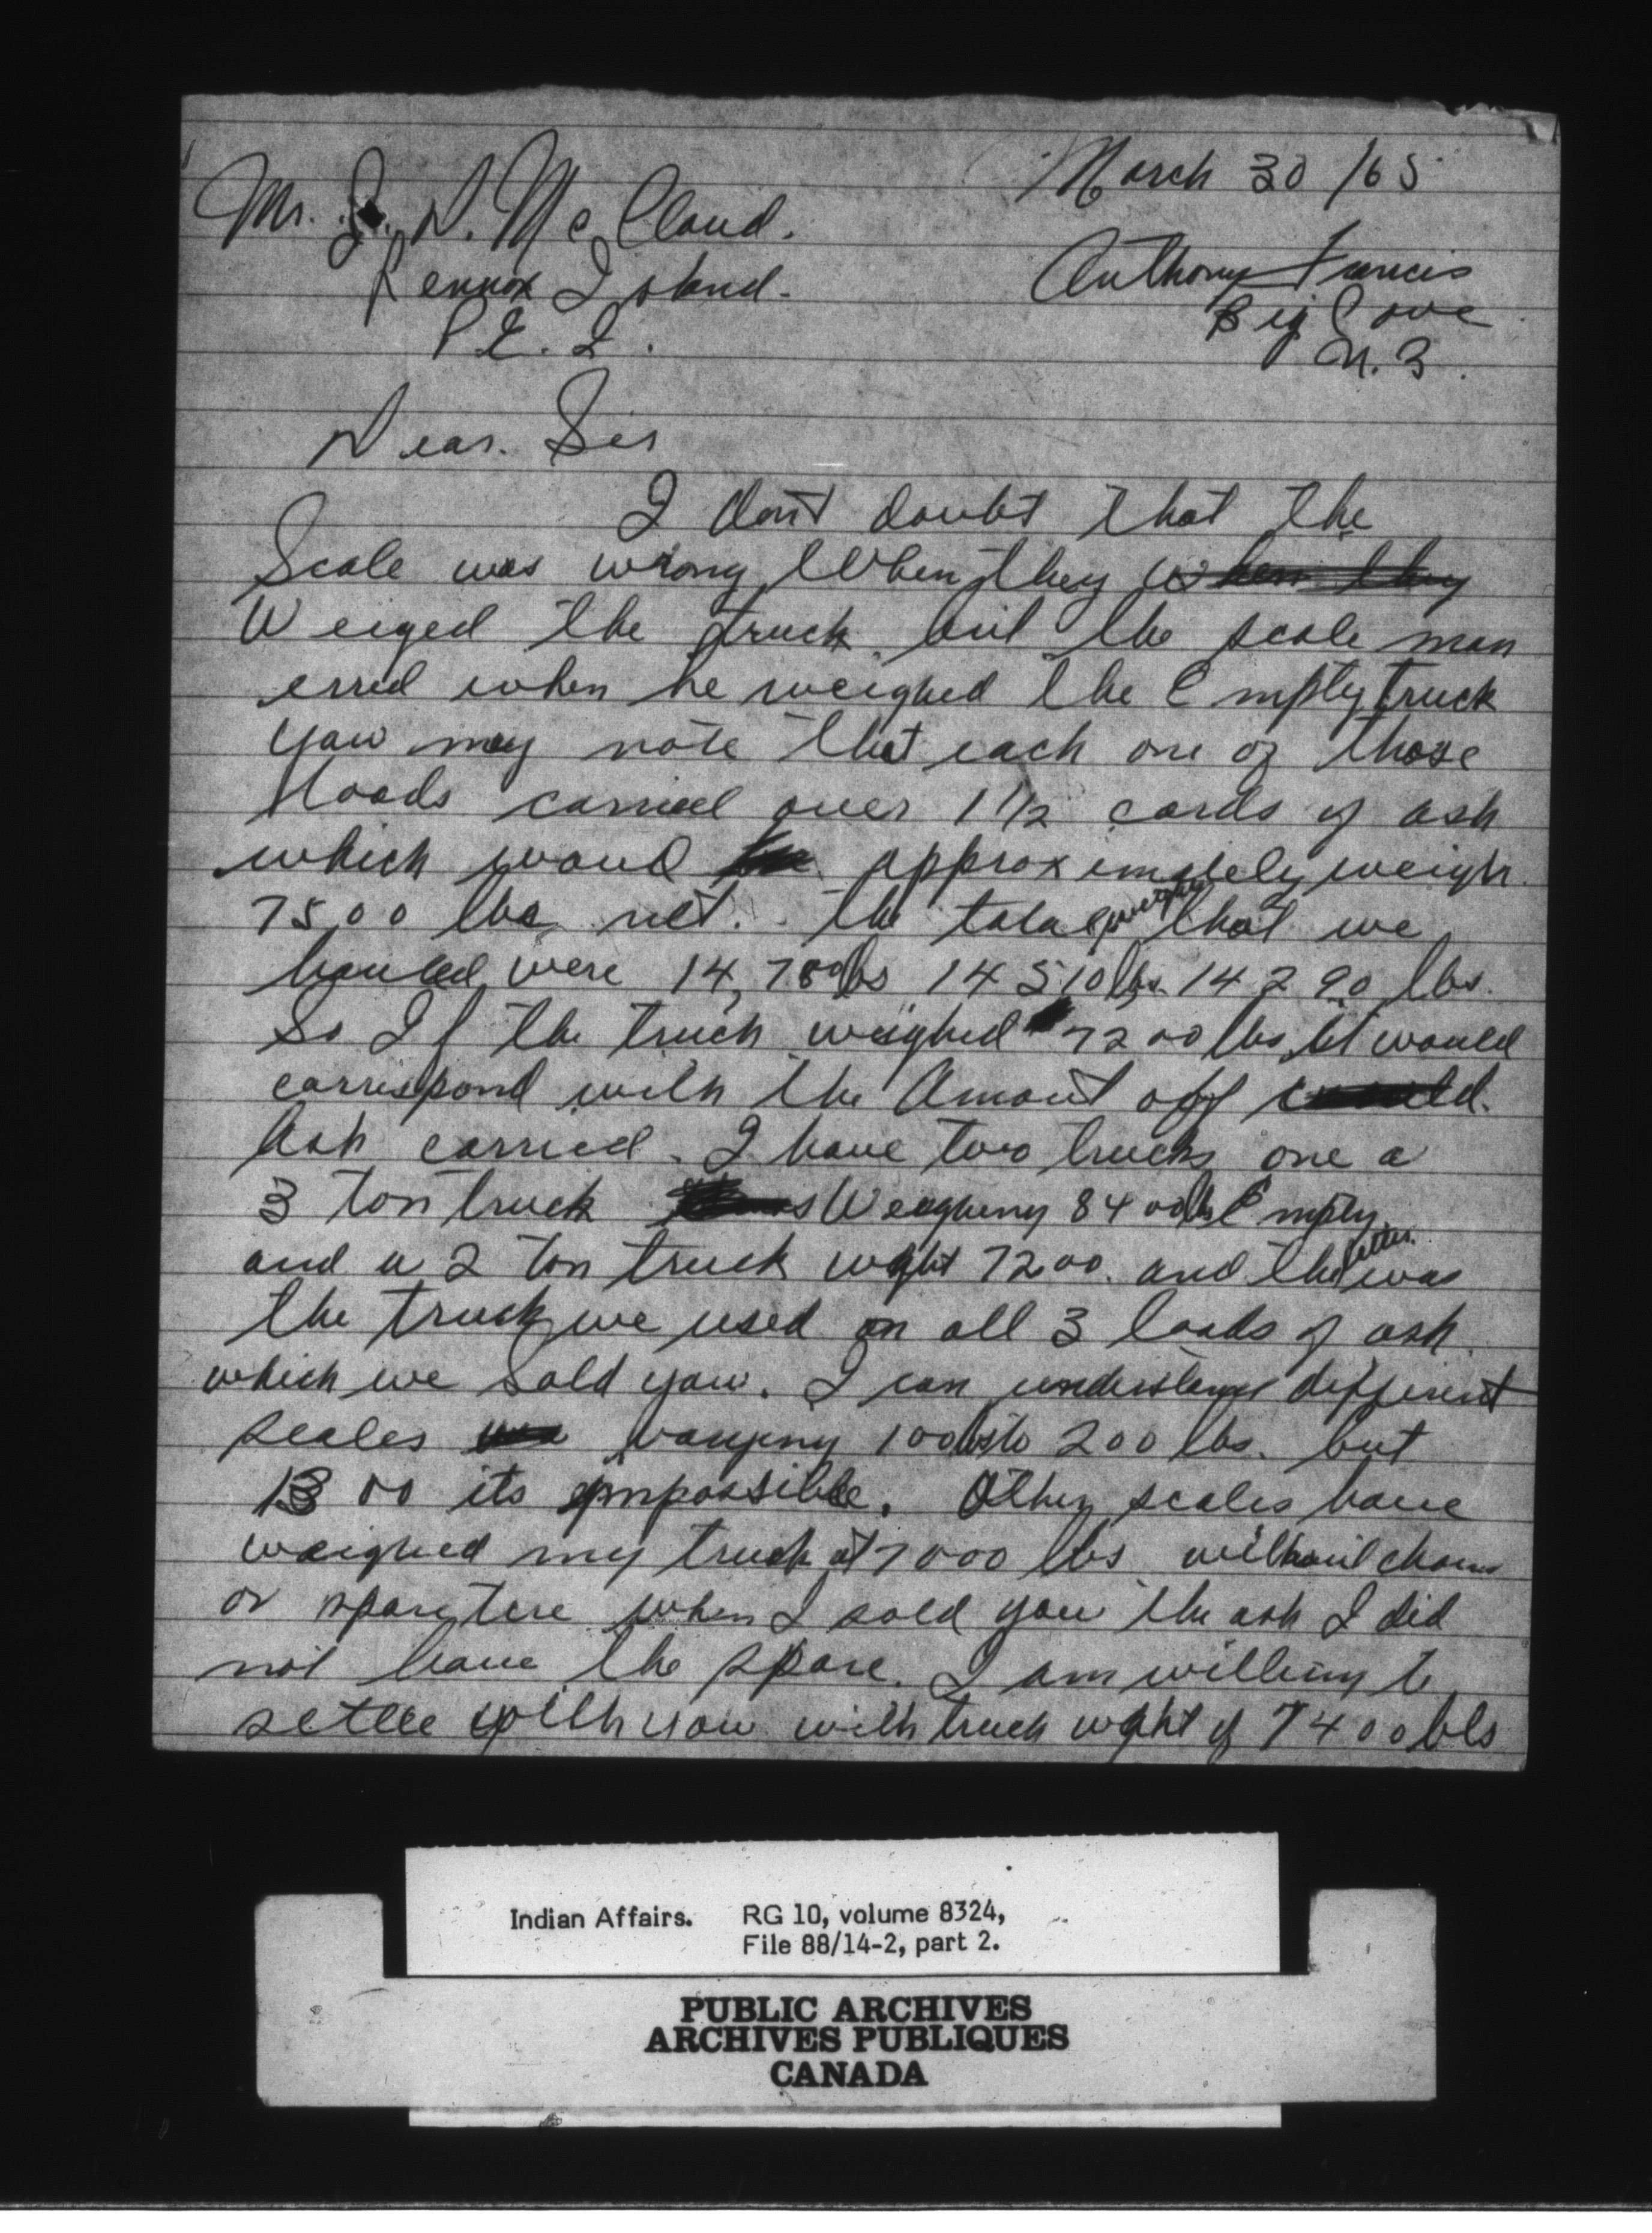 March 30 /65
Mr. J. D. McCloud.
Lennox Island.
P.E.I.
Anthony Francis
Big Cove
N.B.
Dear. Sir
I dont doubt that the
Scale was wrong When they when they
Weiged the truck but the scale man
erred when he weighed the Empty truck
you may note that each one of those
loads carried over 1 1/2 cords of ash
which woul approximately weigh
7500 lbs net. the total weight that we
hauled were 14,780 lbs 14510 lbs. 14290 lbs.
So If the truck weighed 7200 lbs it would
correspond with the Amout off would
Ash carried. I have two trucks one a
3 ton truck Weighing 8400 lbs Empty
and a 2 ton truck wght 7200. and the latter was
the truck we used on all 3 loads of ash
which we Sold you. I can understand different
scales varying 100 lbs to 200 lbs. but
1300 its impossible. Other scales have
weighed my truck at 7000 lbs without chains
or spare tire when I sold you the ash I did
not have the spare. I am willing to
settle with you with truck wght of 7400 lbs
Indian Affairs. RG 10, volume 8324,
File 88/14-2, part 2.
PUBLIC ARCHIVES
ARCHIVES PUBLIQUES
CANADA